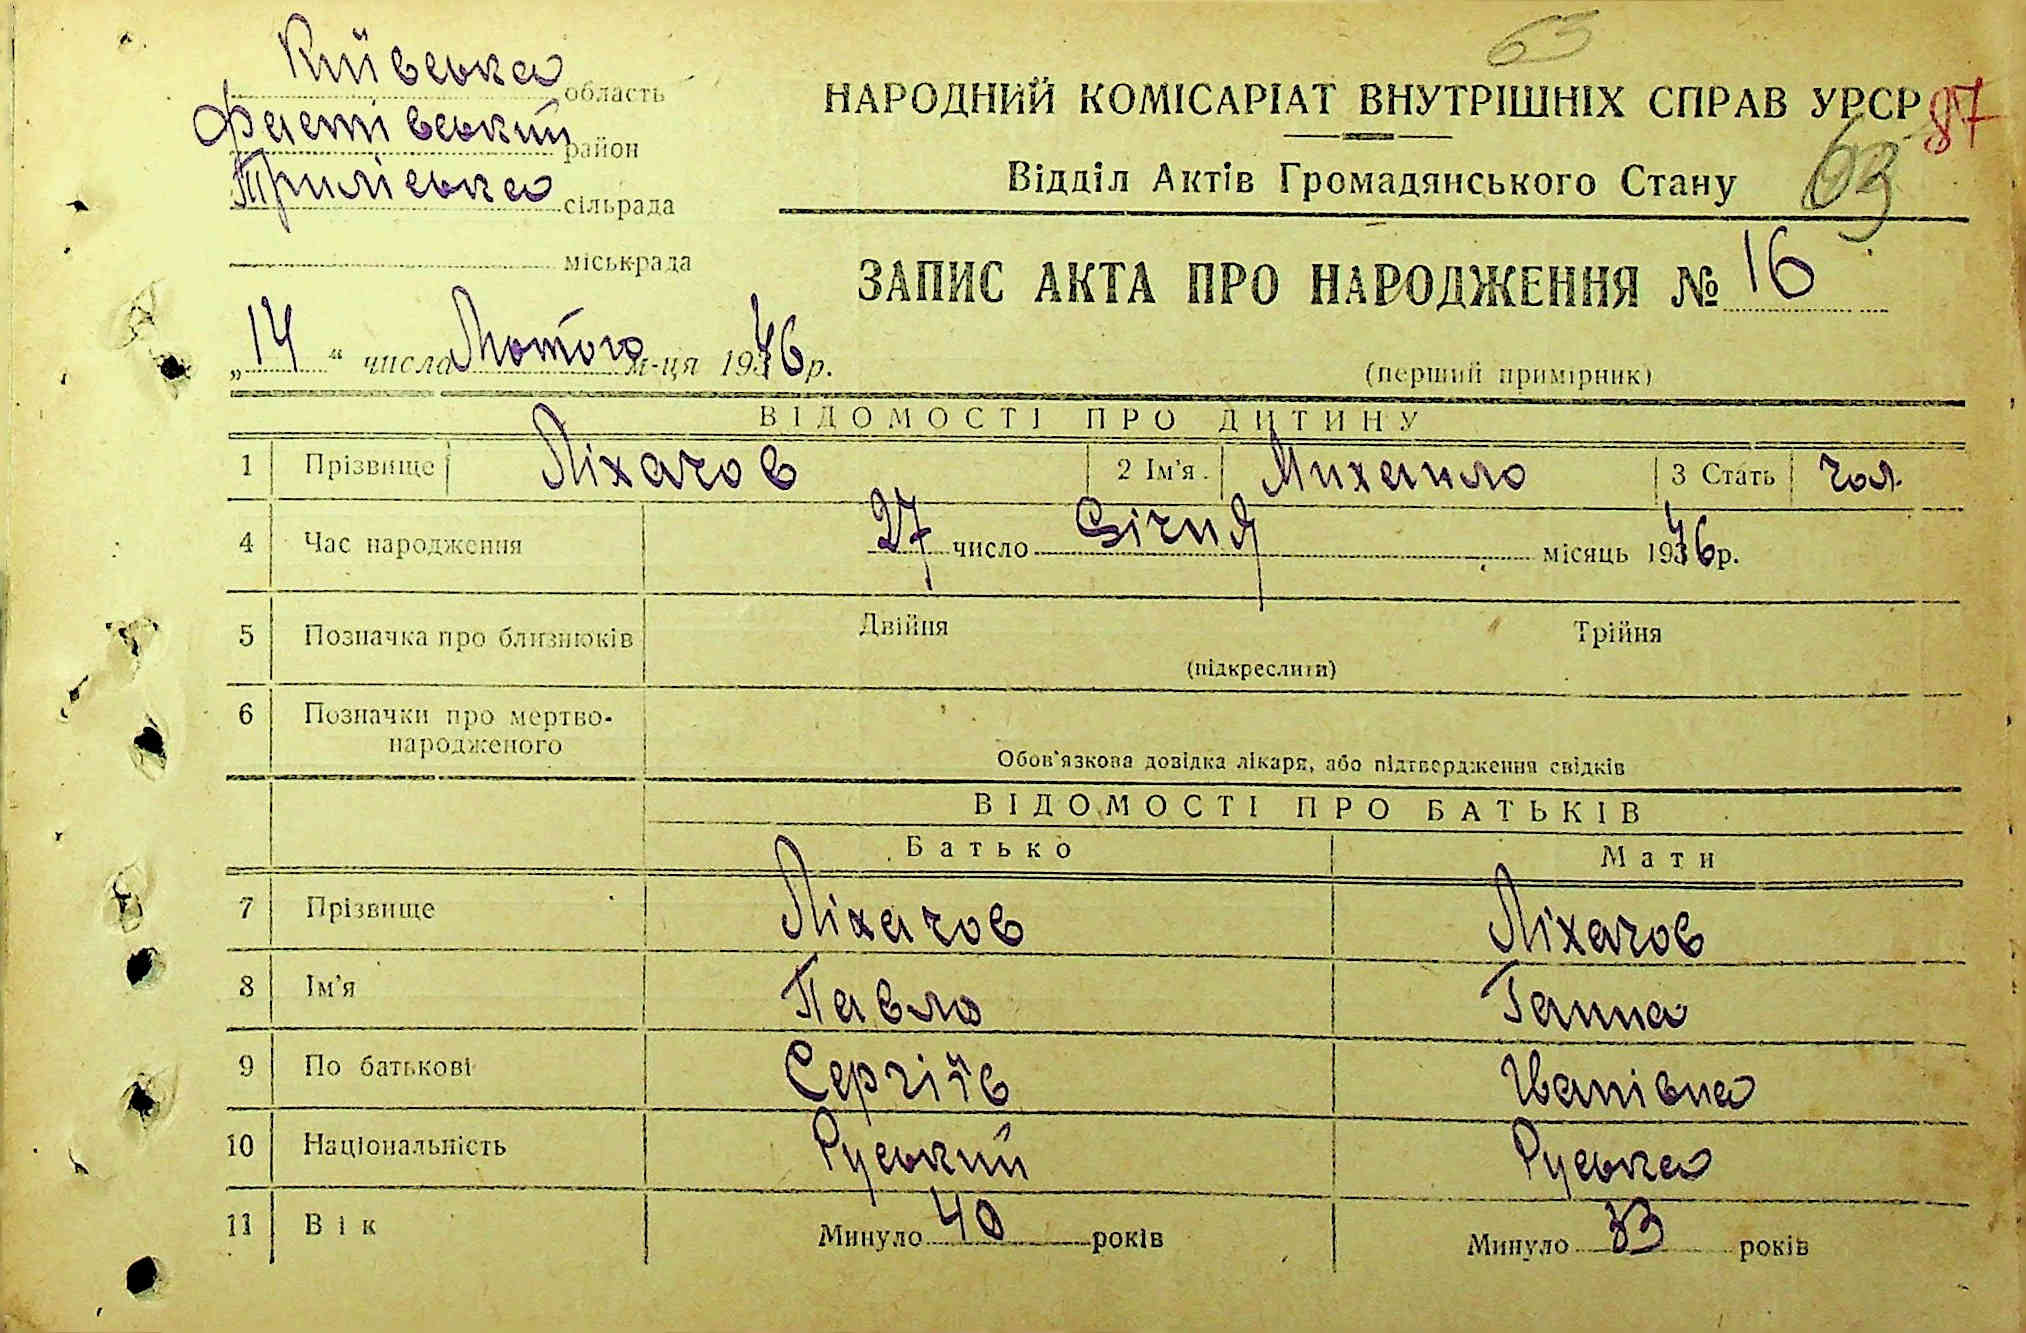 63
Київська область
Фастівський район
Триліська сільрада
міськрада
НАРОДНИЙ КОМІСАРІАТ ВНУТРІШНІХ СПРАВ УРСР 87
Відділ Актів Громадянського Стану 63
ЗАПИС АКТА ПРО НАРОДЖЕННЯ № 16
„14“ числа Лютого м-ця 1946 р.
(перший примірник)
ВІДОМОСТІ ПРО ДИТИНУ
1 Прізвище Ліхачов 2 Ім'я. Михаило 3 Стать чол.
4 Час народження 27 число Січня місяць 1946 р.
5 Позначка про близнюків Двійня Трійня
(підкреслити)
6 Позначки про мертво-
народженого
Обов'язкова довідка лікаря, або підтвердження свідків
ВІДОМОСТІ ПРО БАТЬКІВ
Батько Мати
7 Прізвище Ліхачов Ліхачов
8 Ім'я Павло Ганна
9 По батькові Сергіїв Іванівна
10 Національність Руський Руська
11 Вік Минуло 40 років Минуло 33 років